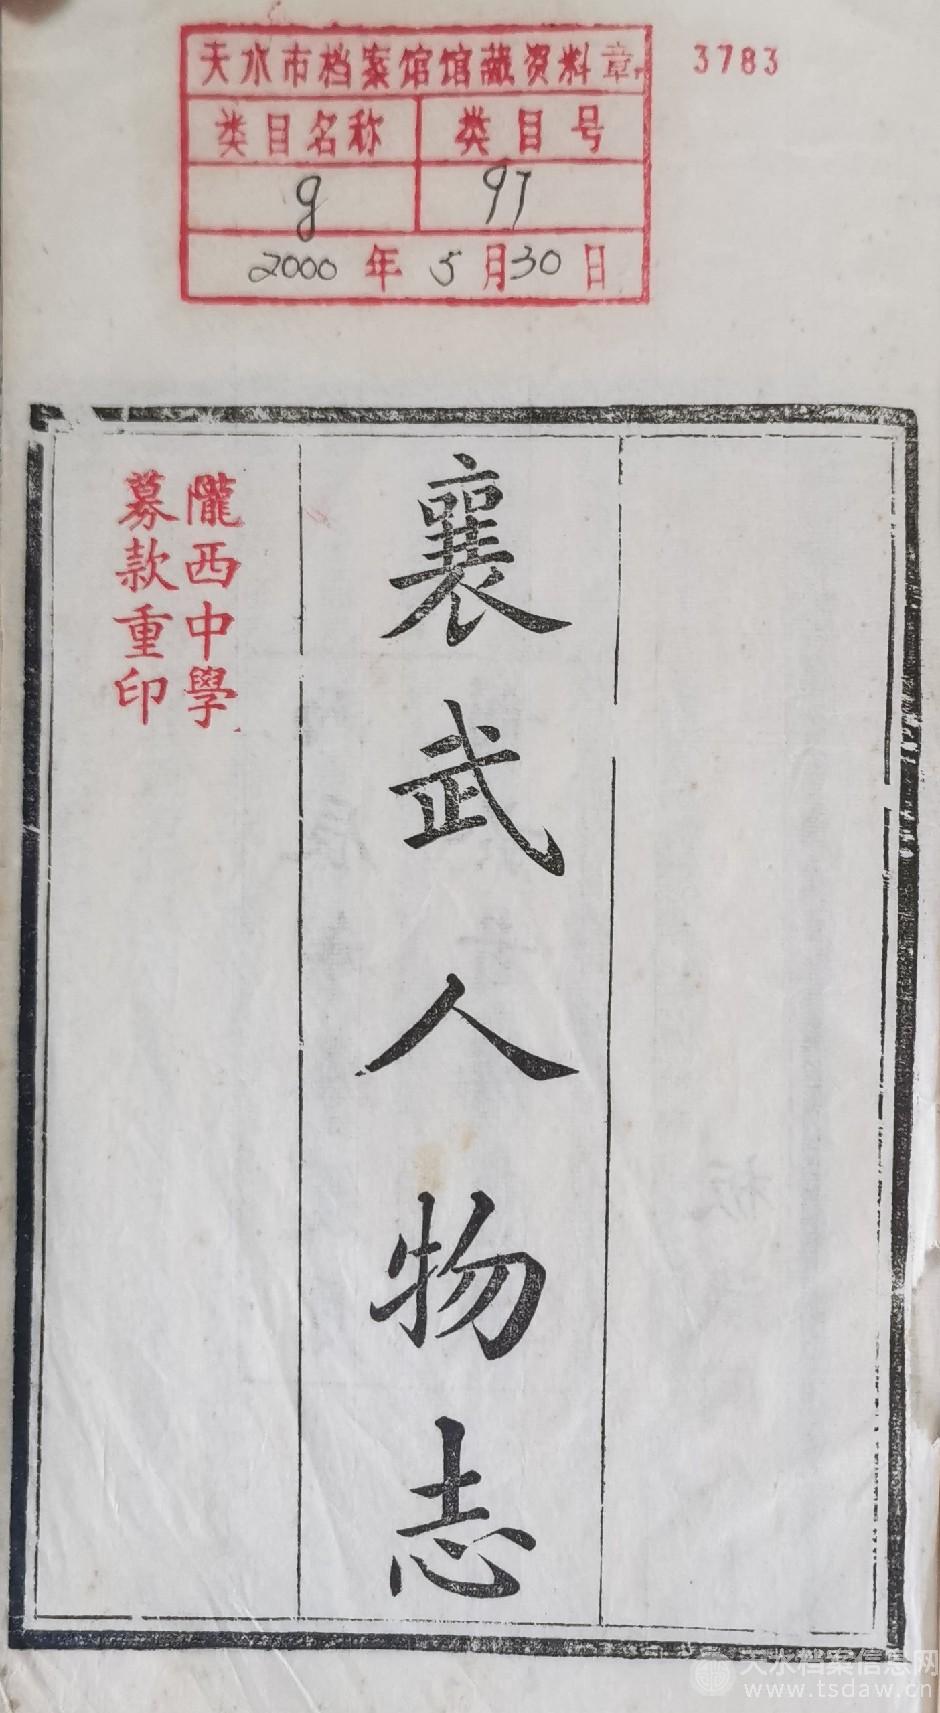 天水市档案馆馆藏资料章
3783
类目名称 类目号
g 97
2000年5月30日
襄武人物志
隴西中學
募款重印
天水档案信息网
www.tsdaw.cn